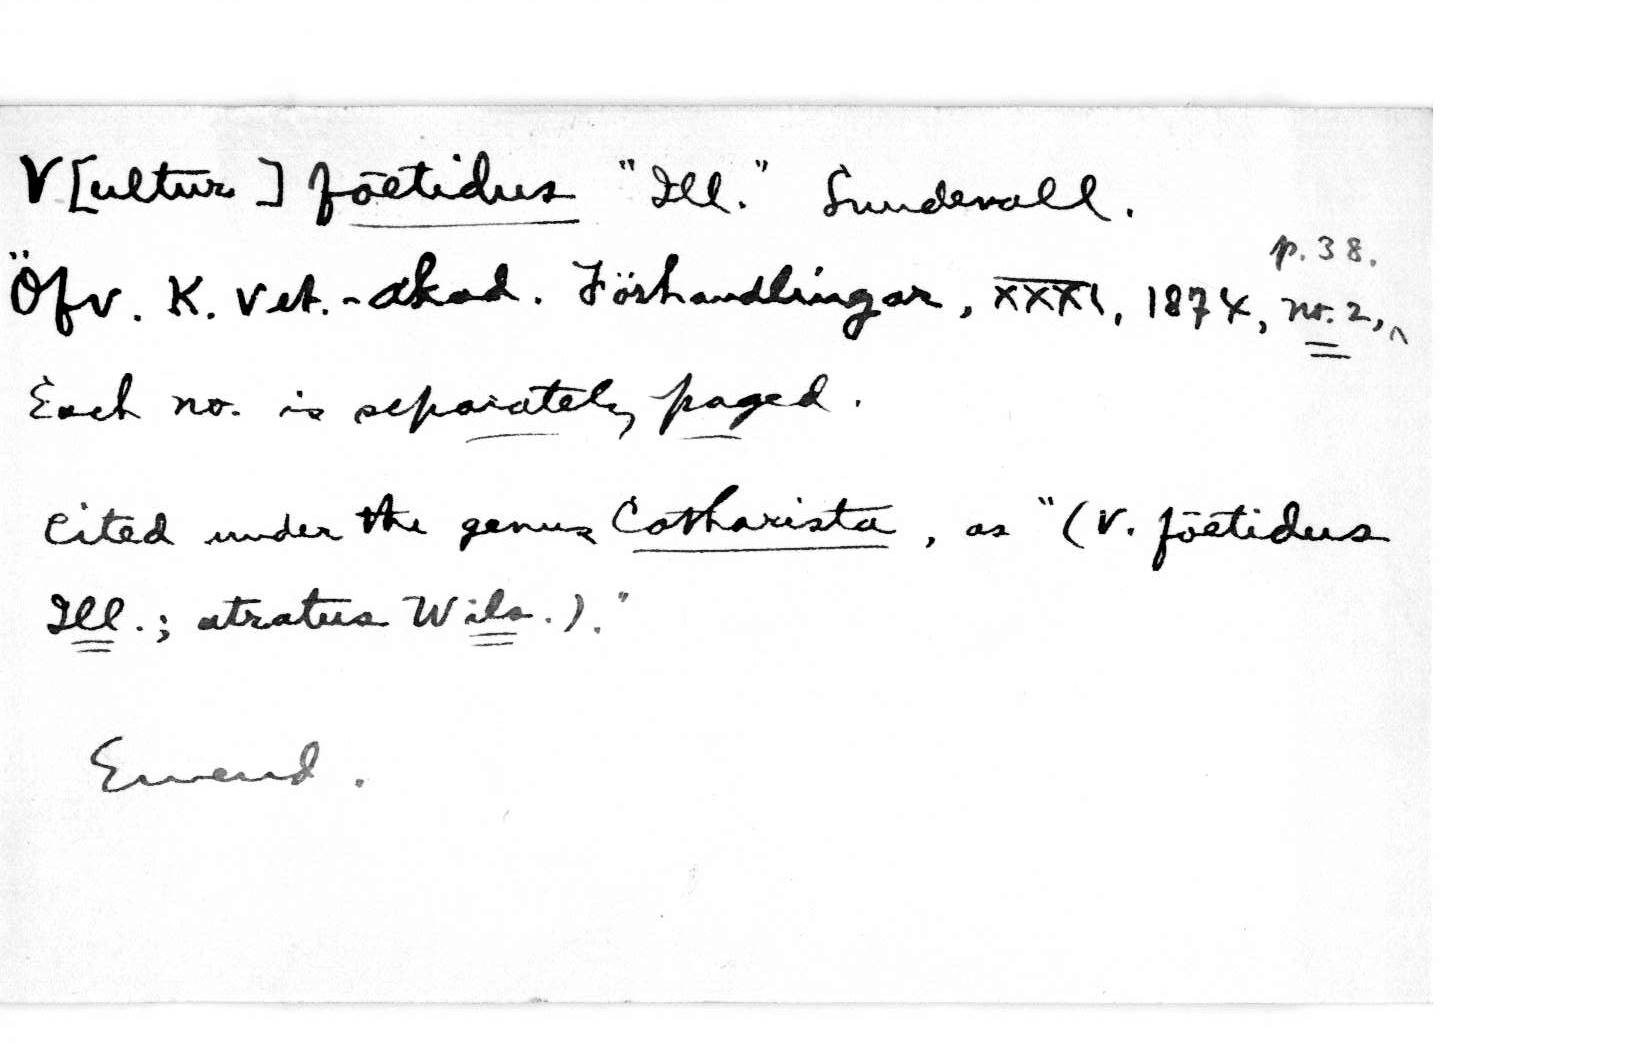 V[ultur] föetidus "Ill." Sundevall.
Öfv. K. Vet.-Akad. Förhandlingar, XXXI, 1874, no. 2, ^ p. 38.
Each no. is separately paged.
Cited under the genus Catharista, as "(V. föetidus
Ill.; atratus Wils.)."
Emend.